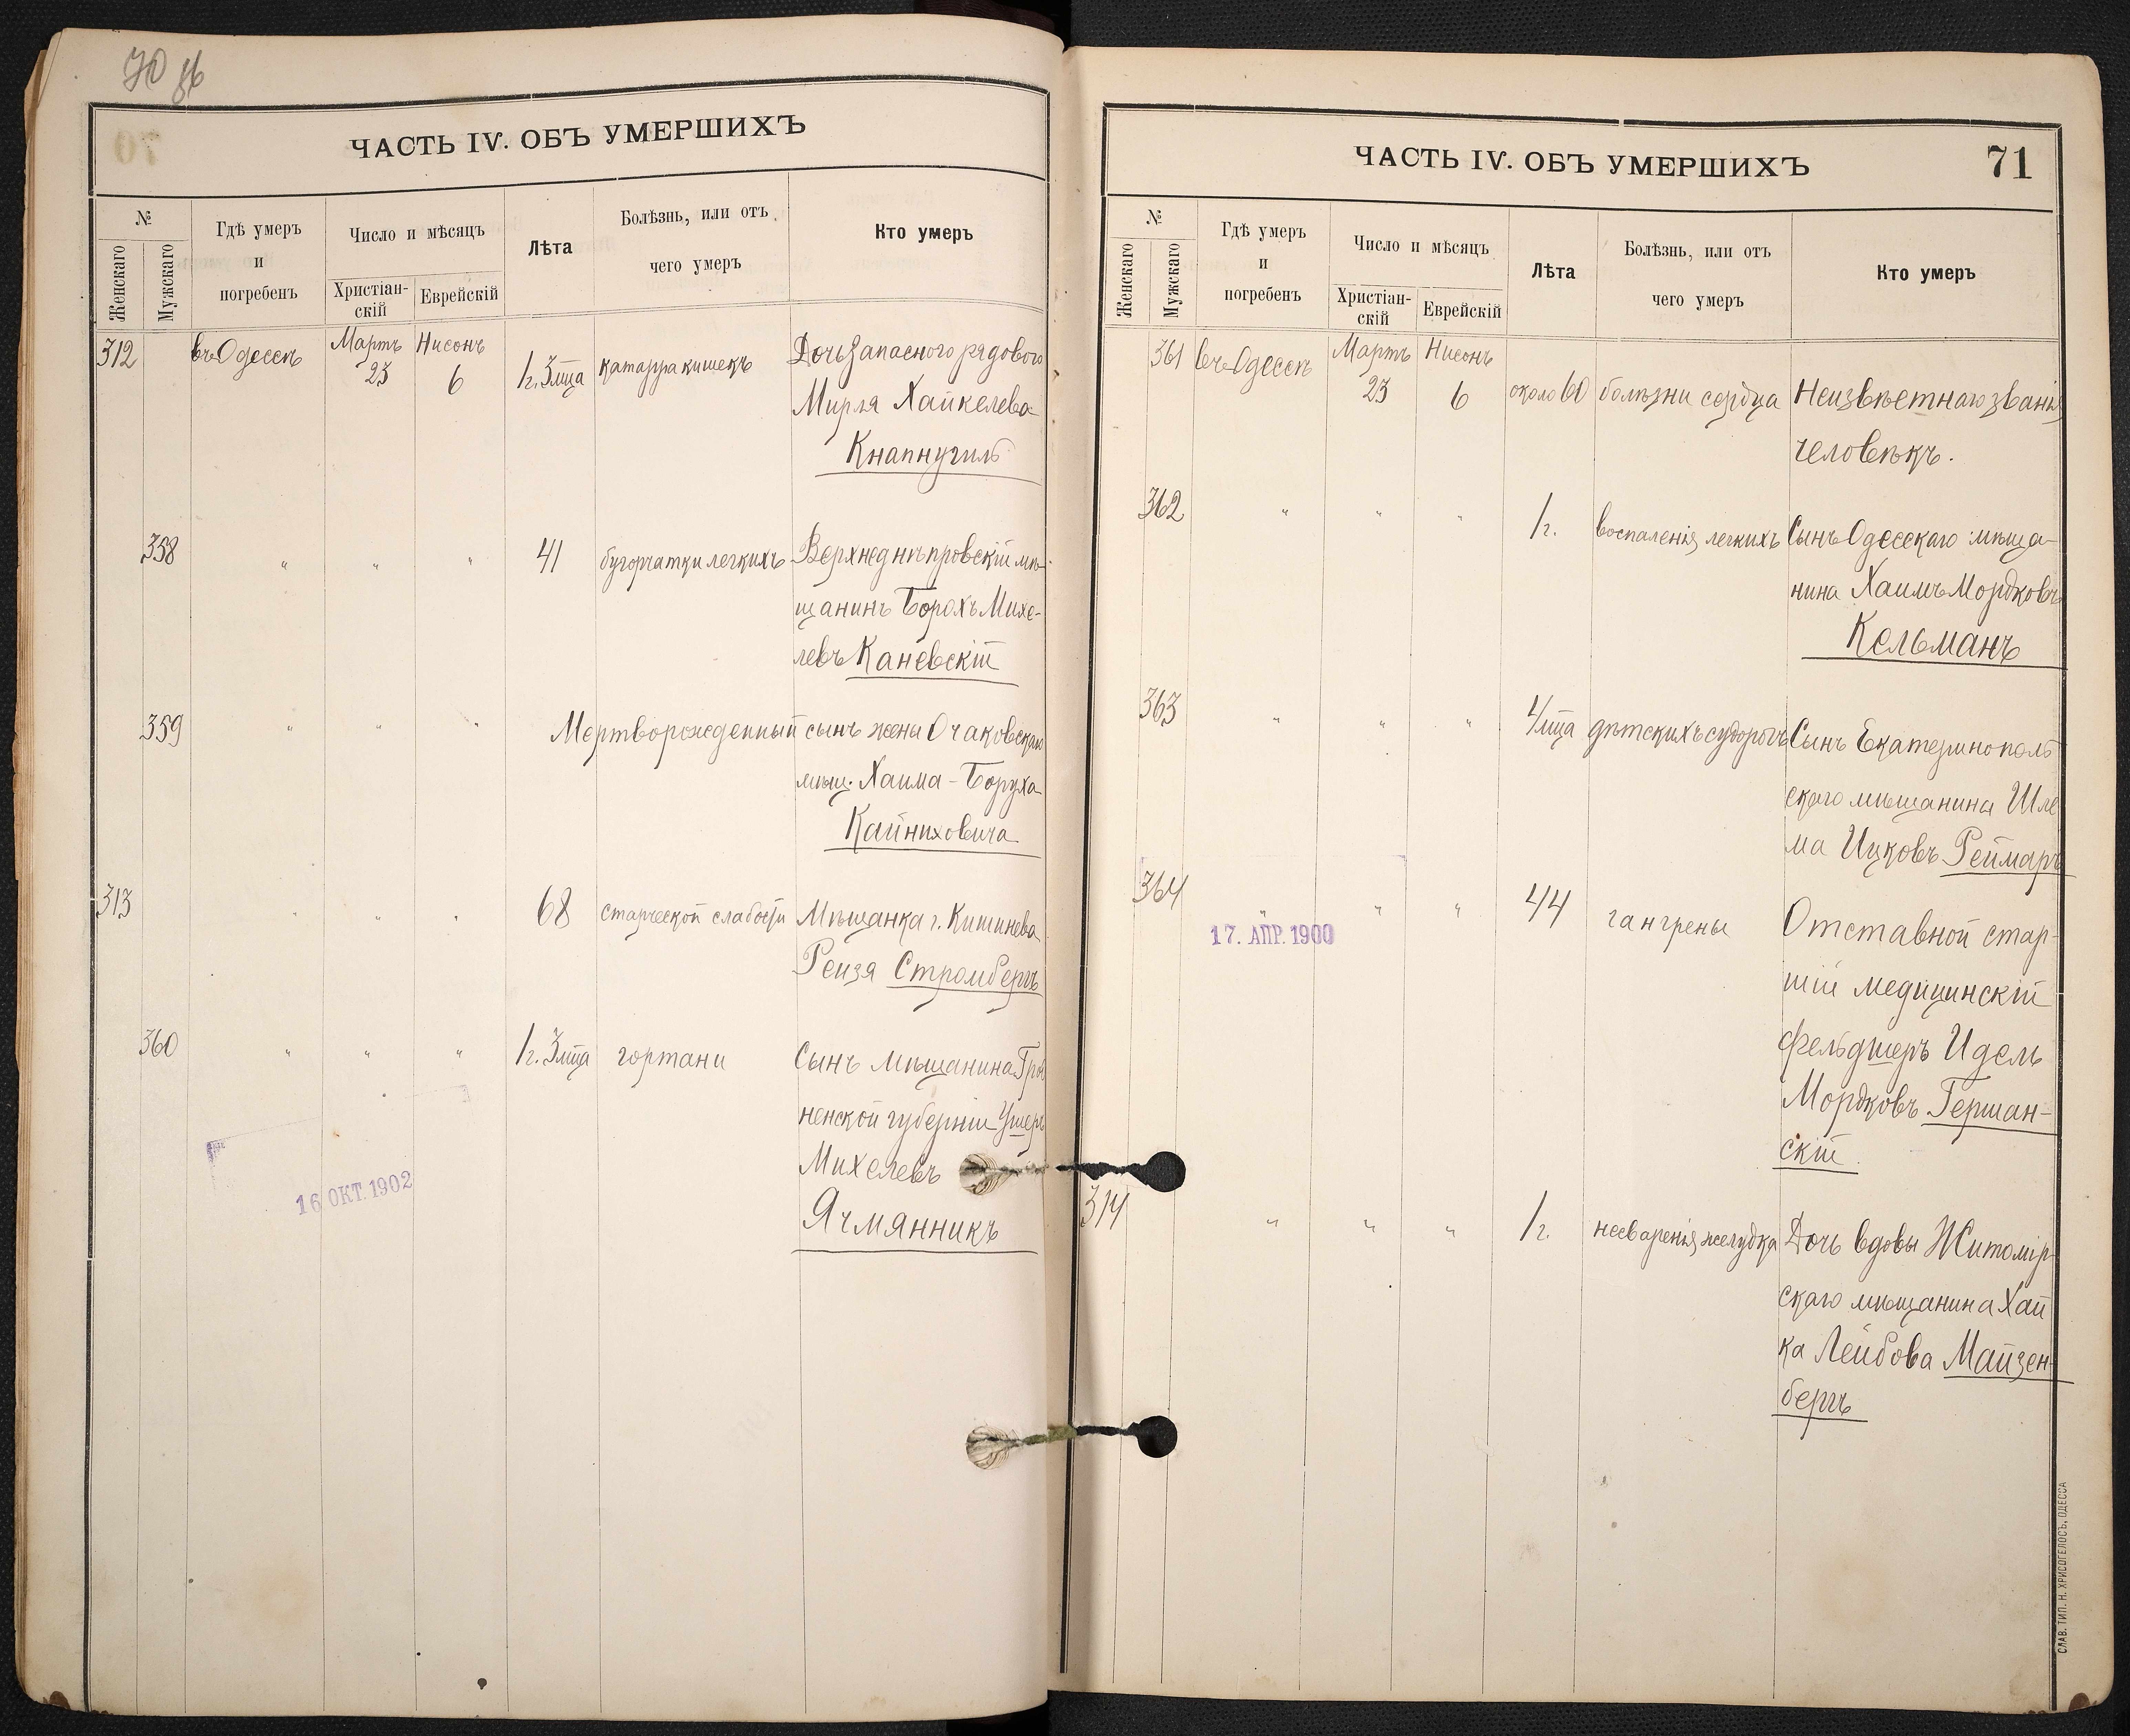 70 об
ЧАСТЬ IV. ОБЪ УМЕРШИХЪ
№
Женскаго
Мужскаго
Гдѣ умеръ
и
погребенъ
Число и мѣсяцъ
Христіан-
скій
Еврейскій
Лѣта
Болѣзнь, или отъ
чего умеръ
Кто умеръ
312 въ Одессѣ Мартъ 23 Нисонъ 6 1 г. 3 мца катарра кишекъ Дочь запасного рядового
Мирля Хайкелева
Кнапнугиль
358 " " " 41 бугорчатки легкихъ Верхнеднѣпровскій мѣ-
щанинъ Борохъ Михе-
левъ Каневскій
359 " " " Мертворожденный сынъ жены Очаковскаго
мѣщ. Хаима-Боруха
Кайниховича
313 " " " 68 старческой слабости Мѣщанка г. Кишинева
Рейзя Стромбергъ
360 " " " 1 г. 3 мца гортани Сынъ мѣщанина Грод
ненской губерніи Ушеръ
Михелевъ
Ячмянникъ
16 ОКТ. 1902
ЧАСТЬ IV. ОБЪ УМЕРШИХЪ
71
№
Женскаго
Мужскаго
Гдѣ умеръ
и
погребенъ
Число и мѣсяцъ
Христіан-
скій
Еврейскій
Лѣта
Болѣзнь, или отъ
чего умеръ
Кто умеръ
361 въ Одессѣ Мартъ 23 Нисонъ 6 около 60 болѣзни сердца Неизвѣстнаго званія
человѣкъ.
362 " " " 1 г. воспаленія легкихъ Сынъ Одесскаго мѣща-
нина Хаимъ Мордковъ
Кельманъ
363 " " " 4 мца дѣтскихъ судорогъ Сынъ Екатеринополь
скаго мѣщанина Шле
ма Ицковъ Реймаръ
364 " " " 44 гангрены Отставной стар-
шій медицинскій
фельдшеръ Идель
Мордковъ Гершан-
скій
17. АПР. 1900
314 " " " 1 г. несваренія желудка Дочь вдовы Житомір-
скаго мѣщанина Хай
ка Лейбова Майзен-
бергъ
СЛАВ. ТИП. Н. ХРИСОГЕЛОСЪ, ОДЕССА